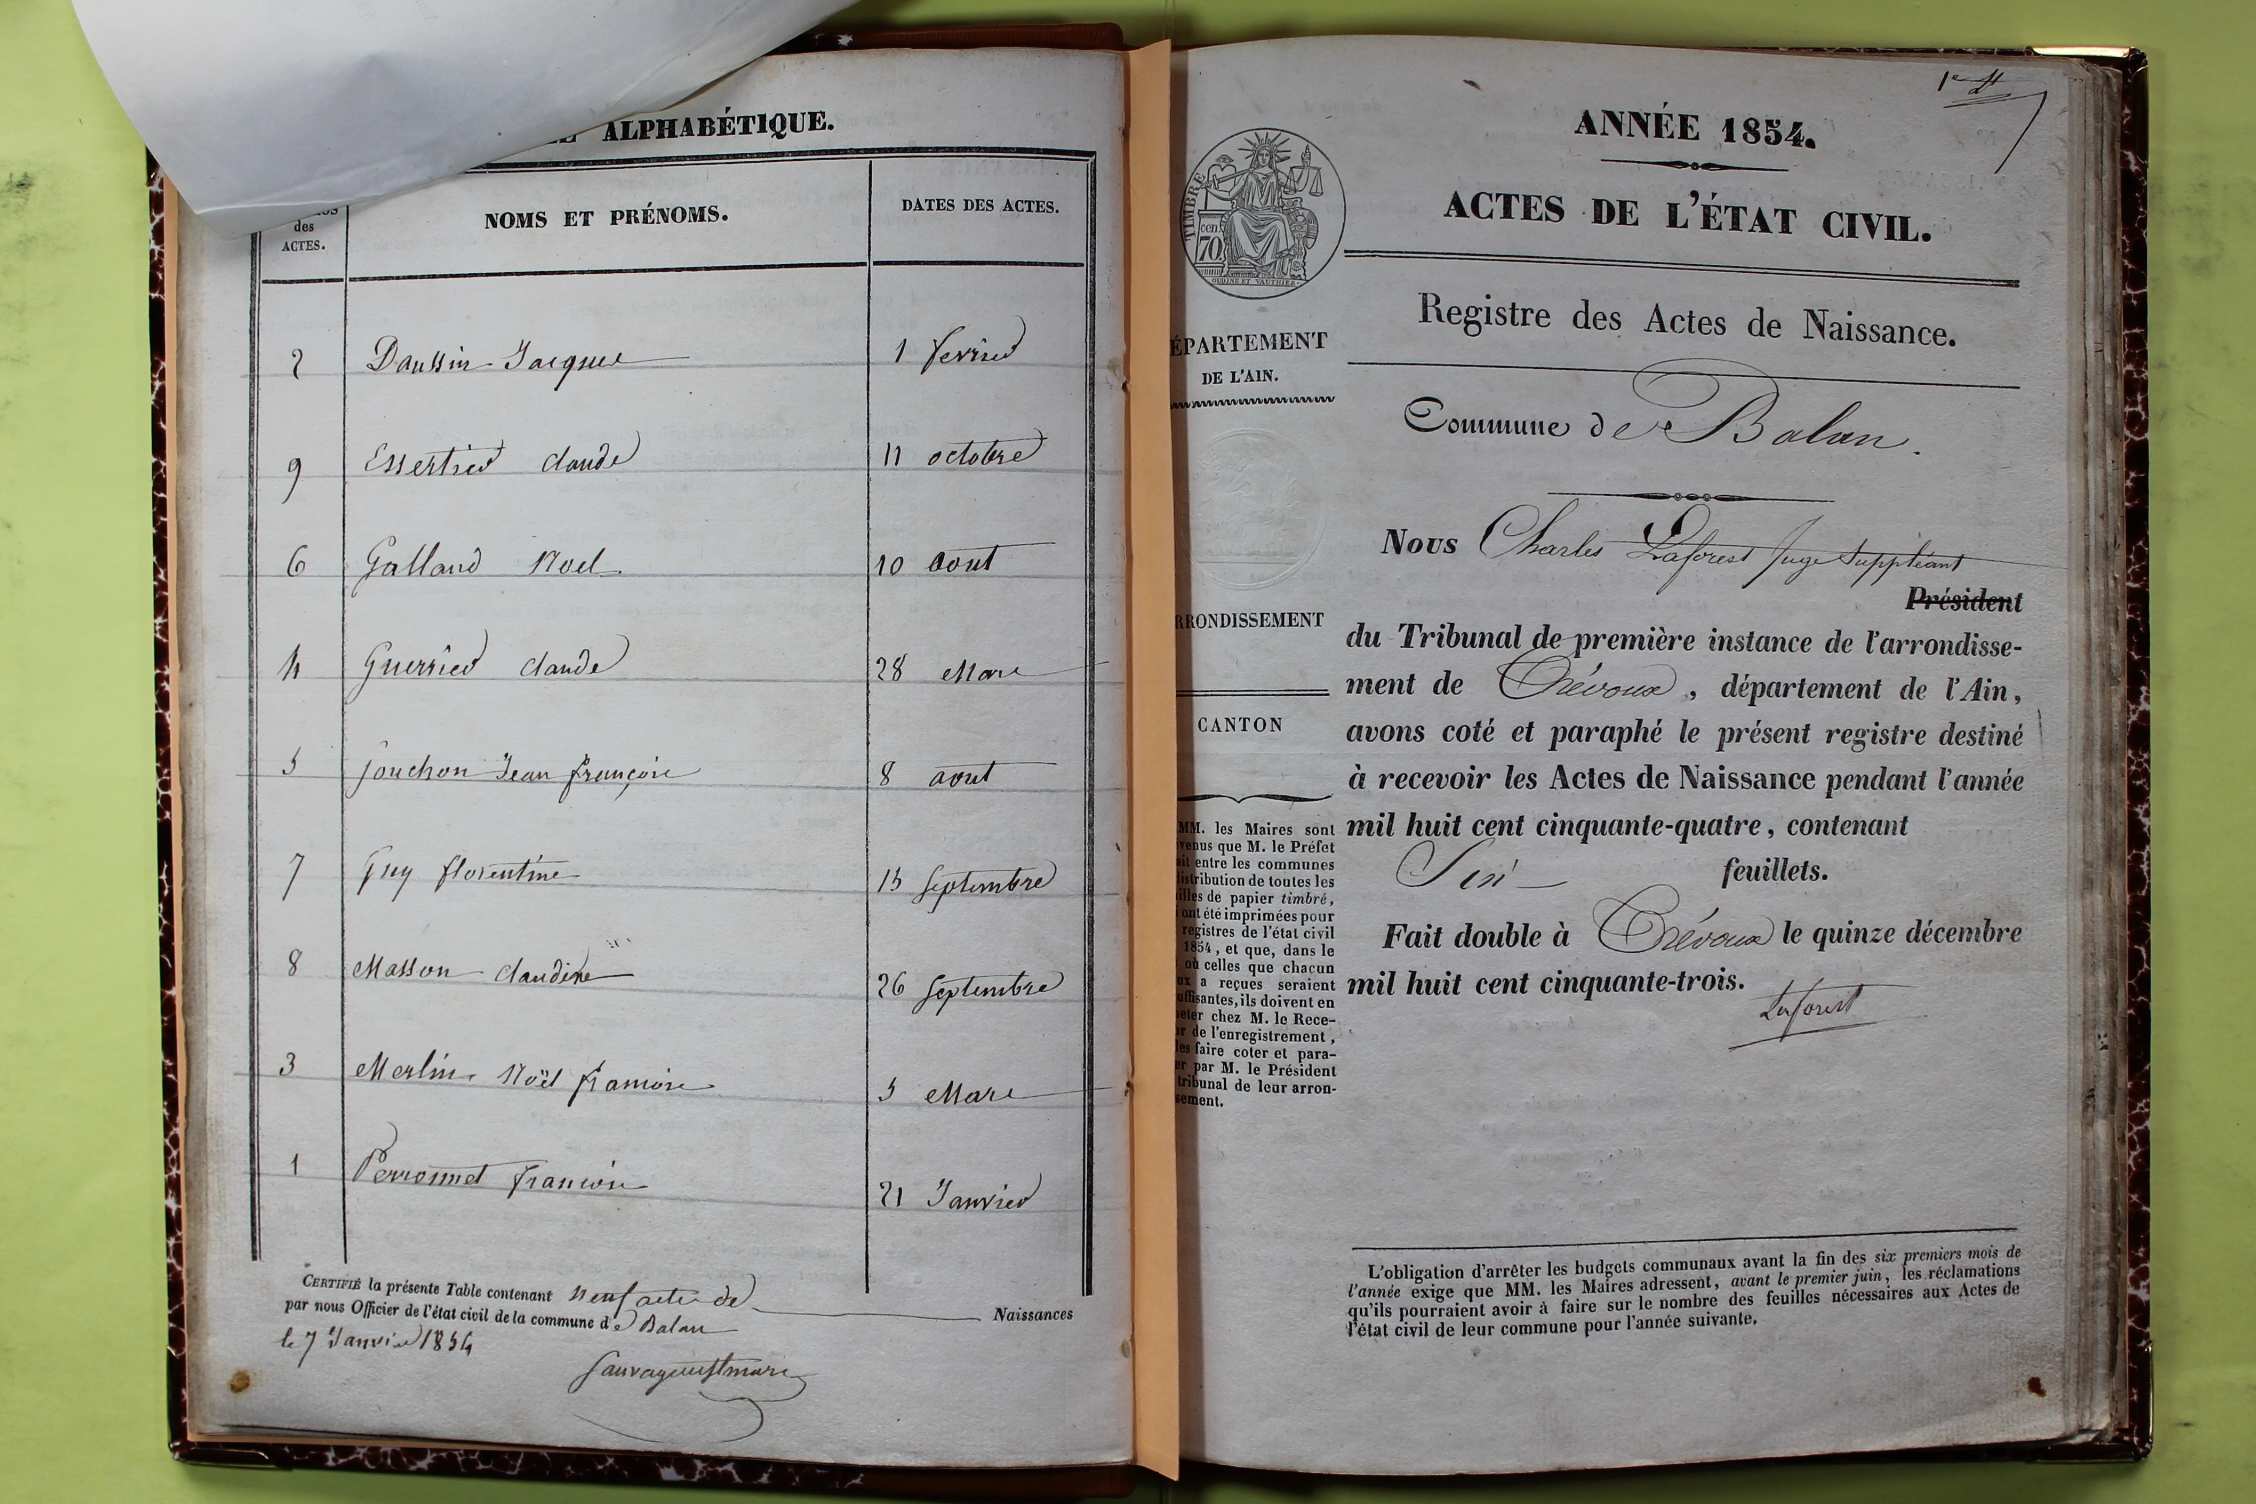 ALPHABÉTIQUE.
des
ACTES.
NOMS ET PRÉNOMS.
DATES DES ACTES.
2 Daussin Jacques 1 fevrier
9 Essertier claude 11 octobre
6 Galland Noel 10 aout
4 Guerrier claude 28 Mars
5 Jouchon Jean françois 8 aout
7 Guy florentine 15 septembre
8 Masson claudine 26 septembre
3 Merlin Noël francois 5 Mars
1 Perronnet francois 21 Janvier
CERTIFIÉ la présente Table contenant neuf actes de Naissances
par nous Officier de l'état civil de la commune de Balan
le 7 Janvier 1854
1er
ANNÉE 1854.
ACTES DE L'ÉTAT CIVIL.
TIMBRE
cen.
70
Registre des Actes de Naissance.
ÉPARTEMENT
DE L'AIN.
Commune de Balan.
Nous Charles Laforest Juge Suppléant
Président
RRONDISSEMENT
du Tribunal de première instance de l'arrondisse-
ment de Trévoux, département de l'Ain,
CANTON
avons coté et paraphé le présent registre destiné
à recevoir les Actes de Naissance pendant l'année
mil huit cent cinquante-quatre, contenant
Six feuillets.
Fait double à Trévoux le quinze décembre
mil huit cent cinquante-trois.
Laforest
MM. les Maires sont
venus que M. le Préfet
ait entre les communes
distribution de toutes les
illes de papier timbré,
ont été imprimées pour
registres de l'état civil
1854, et que, dans le
où celles que chacun
ux a reçues seraient
uffisantes, ils doivent en
eter chez M. le Rece-
ur de l'enregistrement,
les faire coter et para-
er par M. le Président
tribunal de leur arron-
sement.
L'obligation d'arrêter les budgets communaux avant la fin des six premiers mois de
l'année exige que MM. les Maires adressent, avant le premier juin, les réclamations
qu'ils pourraient avoir à faire sur le nombre des feuilles nécessaires aux Actes de
l'état civil de leur commune pour l'année suivante.